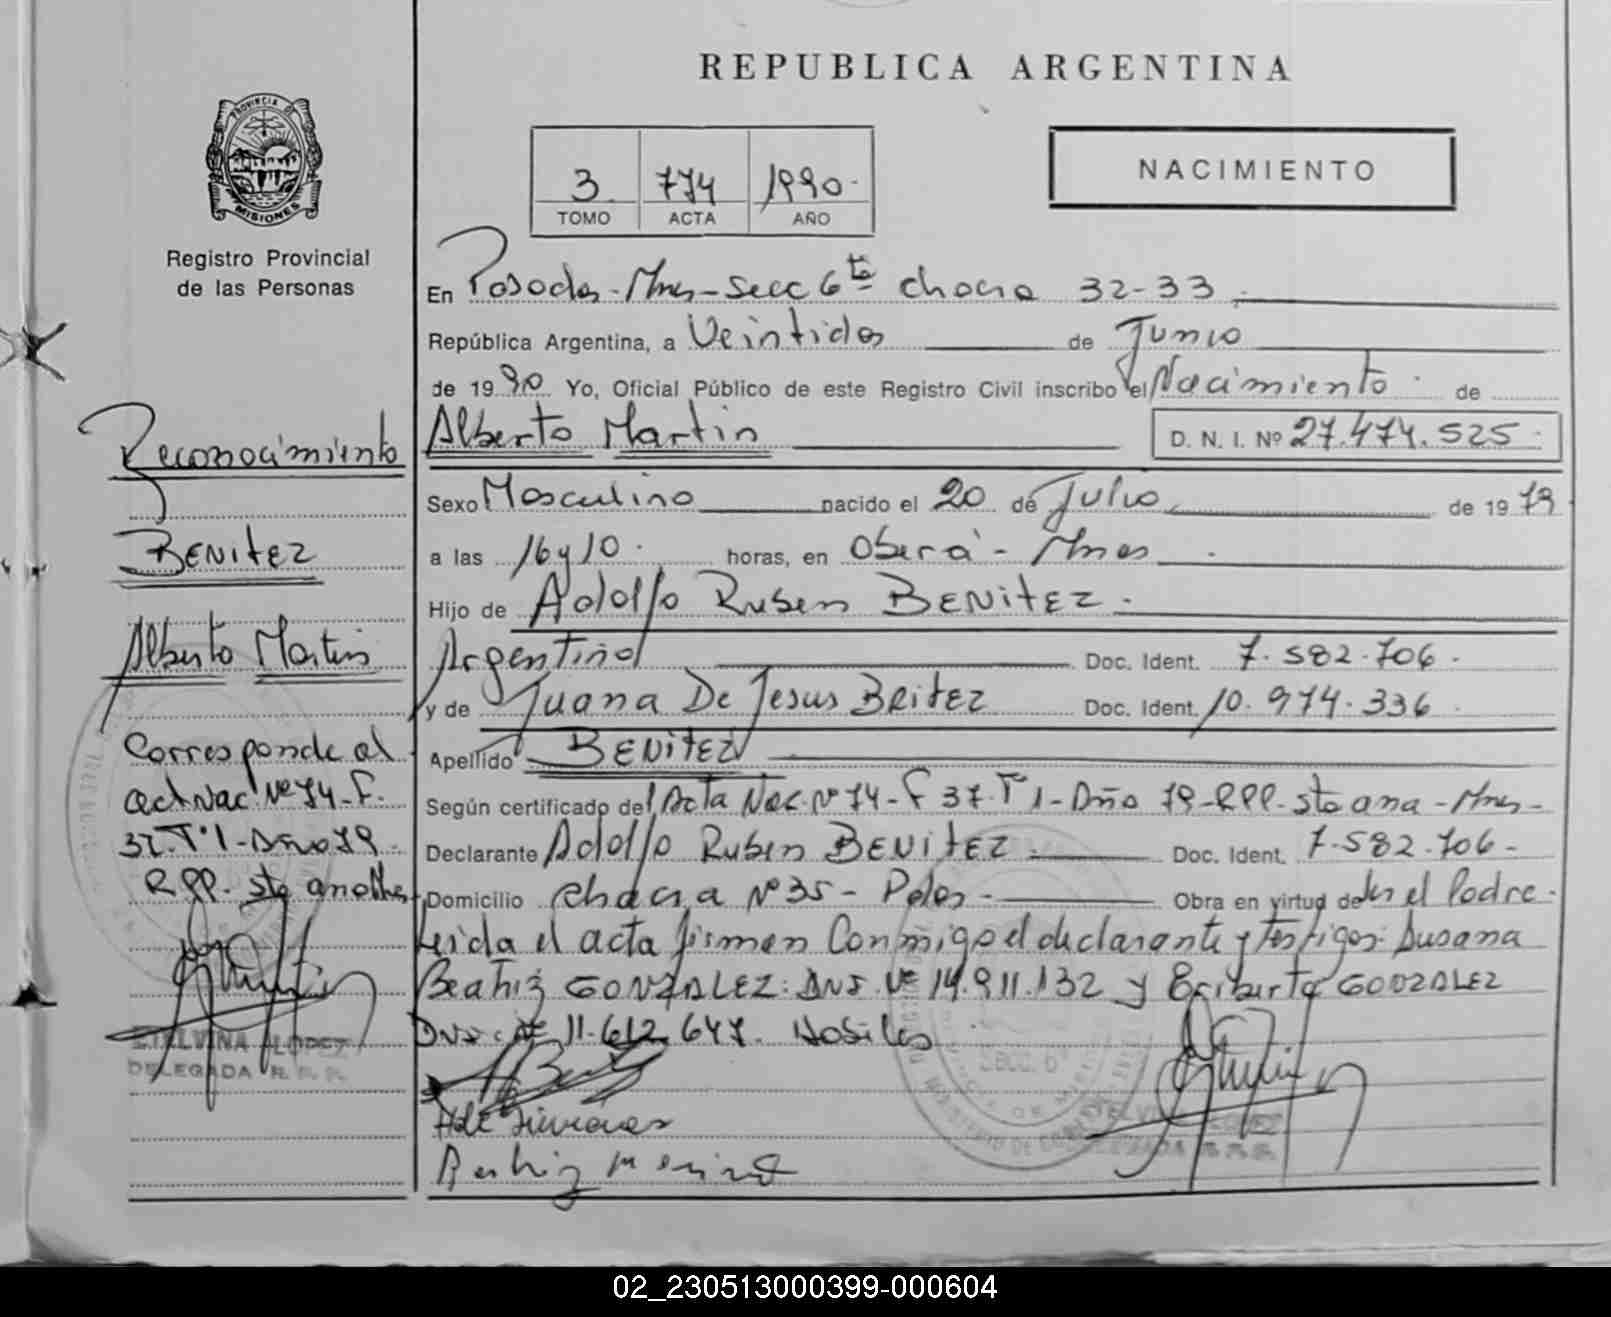 REPUBLICA ARGENTINA
PROVINCIA DE
MISIONES
Registro Provincial
de las Personas
3 774 1990.
TOMO ACTA AÑO
NACIMIENTO
En Posadas-Mnes-Secc 6ta chacra 32-33
República Argentina, a Veintidos de Junio
de 1990 Yo, Oficial Público de este Registro Civil inscribo el Nacimiento de
Alberto Martin D. N. I. Nº 27.474.525
Sexo Masculino nacido el 20 de Julio de 1979
a las 16 y 10. horas, en Oberá - Mnes
Hijo de Adolfo Ruben BENITEZ.
Argentino Doc. Ident. 7.582.706.
y de Juana De Jesus BRITEZ Doc. Ident. 10.974.336
Apellido BENITEZ
Según certificado del Acta Nac. Nº 74-F 37-Tº1-Año 79-RPP. sta ana-Mnes-
Declarante Adolfo Ruben BENITEZ Doc. Ident. 7.582.706-
Domicilio chacra Nº 35 - Pdas- Obra en virtud de ser el Padre.
Leida el acta firman Conmigo el declarante y testigos: Susana
Beatriz GONZALEZ: DNI. Nº 14.911.132 y Eriberto GONZALEZ
DNI. Nº 11.612.647. Habiles
Reconocimiento
BENITEZ
Alberto Martin
Corresponde al
act Nac. Nº 74-F.
37-Tº1-Año 79-
RPP. sta ana Mnes
ETELVINA LOPEZ
DELEGADA R. P. P.
SECC. 6ª
02_230513000399-000604